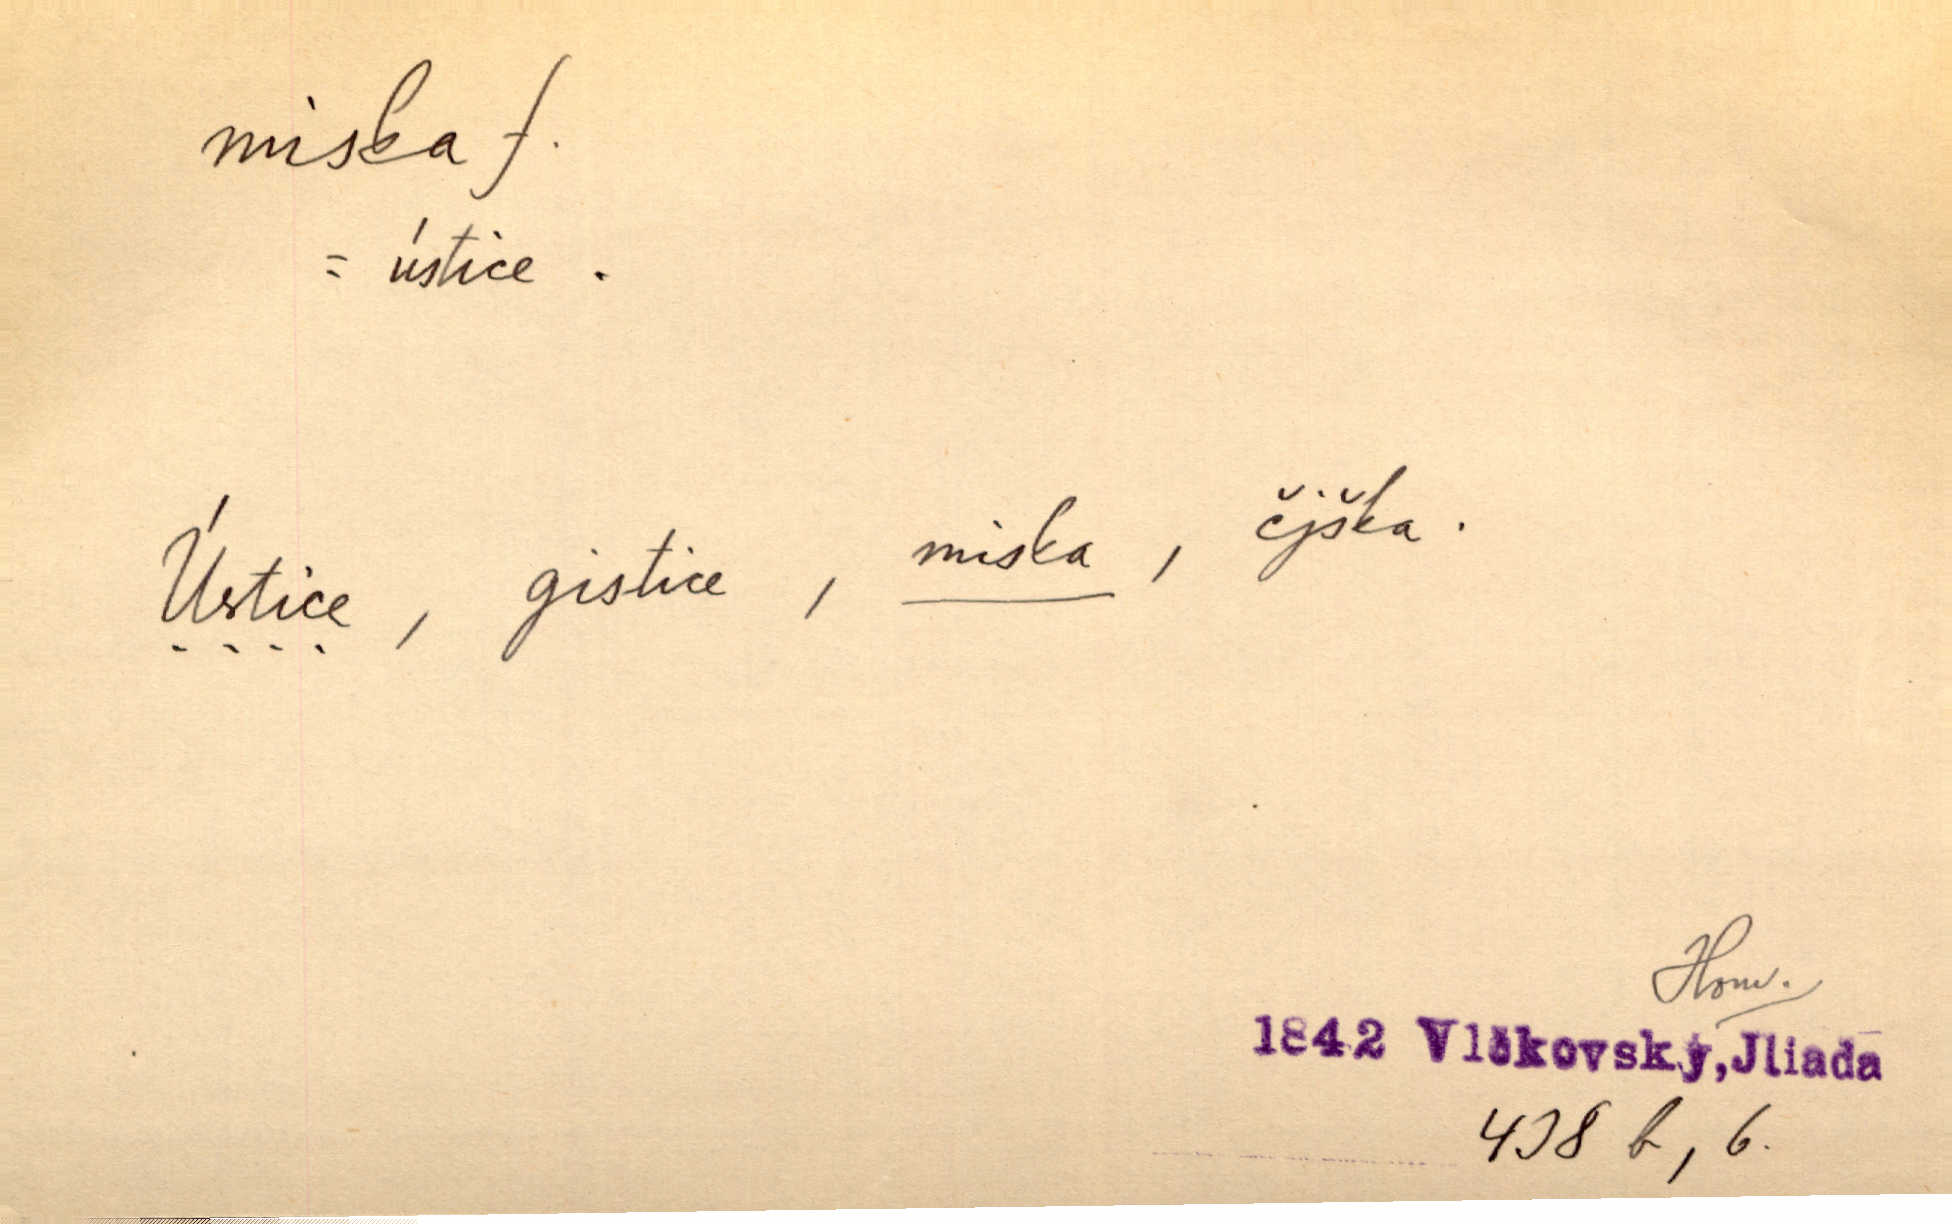 miska f.
= ústice .
Ústice , gistice , miska , čjška .
Hom.
1842 Vlčkovský, Jliada
438 b, 6.